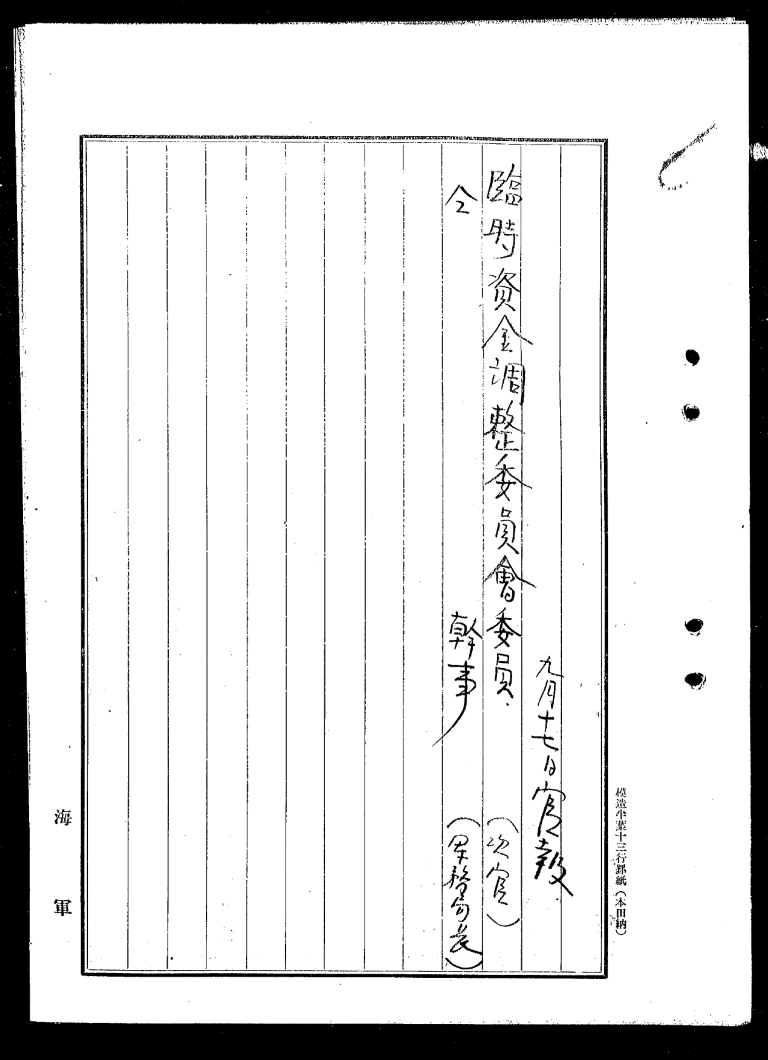 模造半葉十三行罫紙（本田納）
九月十七日官報
臨時資金調整委員會委員（次官）
仝 幹事（軍務局長）
海軍